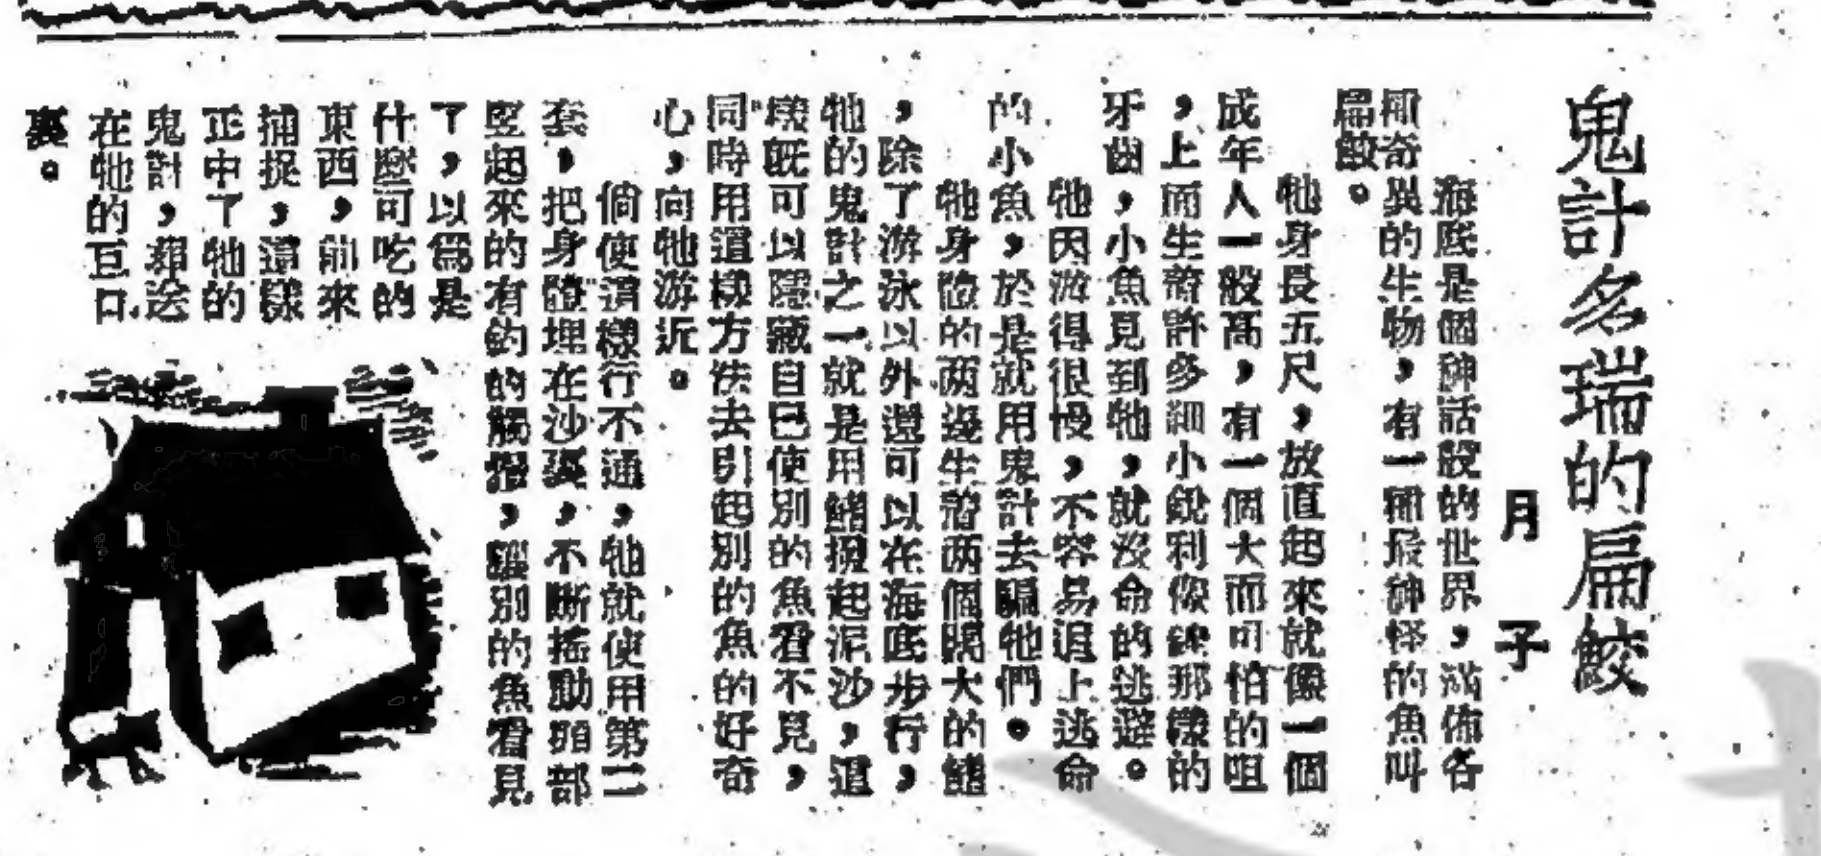 鬼計多端的扁鮫
月子
海底是個神話般的世界,滿佈各
種奇異的生物,有一種最神怪的魚叫
扁鮫。
牠身長五尺,放直起來就像一個
成年人一般高,有一個大而可怕的咀
,上面生着許多細小銳利像針那樣的
牙齒,小魚見到牠,就沒命的逃避。
牠因游得很慢,不容易追上逃命
的小魚,於是就用鬼計去騙牠們。
牠身體的两邊生着两個闊大的鰭
,除了游泳以外還可以在海底步行,
牠的鬼計之一就是用鰭撥起泥沙,這
樣既可以隱藏自己使別的魚看不見,
同時用這樣方法去引起別的魚的好奇
心,向牠游近。
倘使這樣行不通,牠就使用第二
套,把身體埋在沙裏,不斷搖動頭部
竖起來的有鈎的觸鬚,讓別的魚看見
了,以爲是
什麽可吃的
東西,前來
捕捉,這樣
正中了牠的
鬼計,葬送
在牠的巨口
裏。